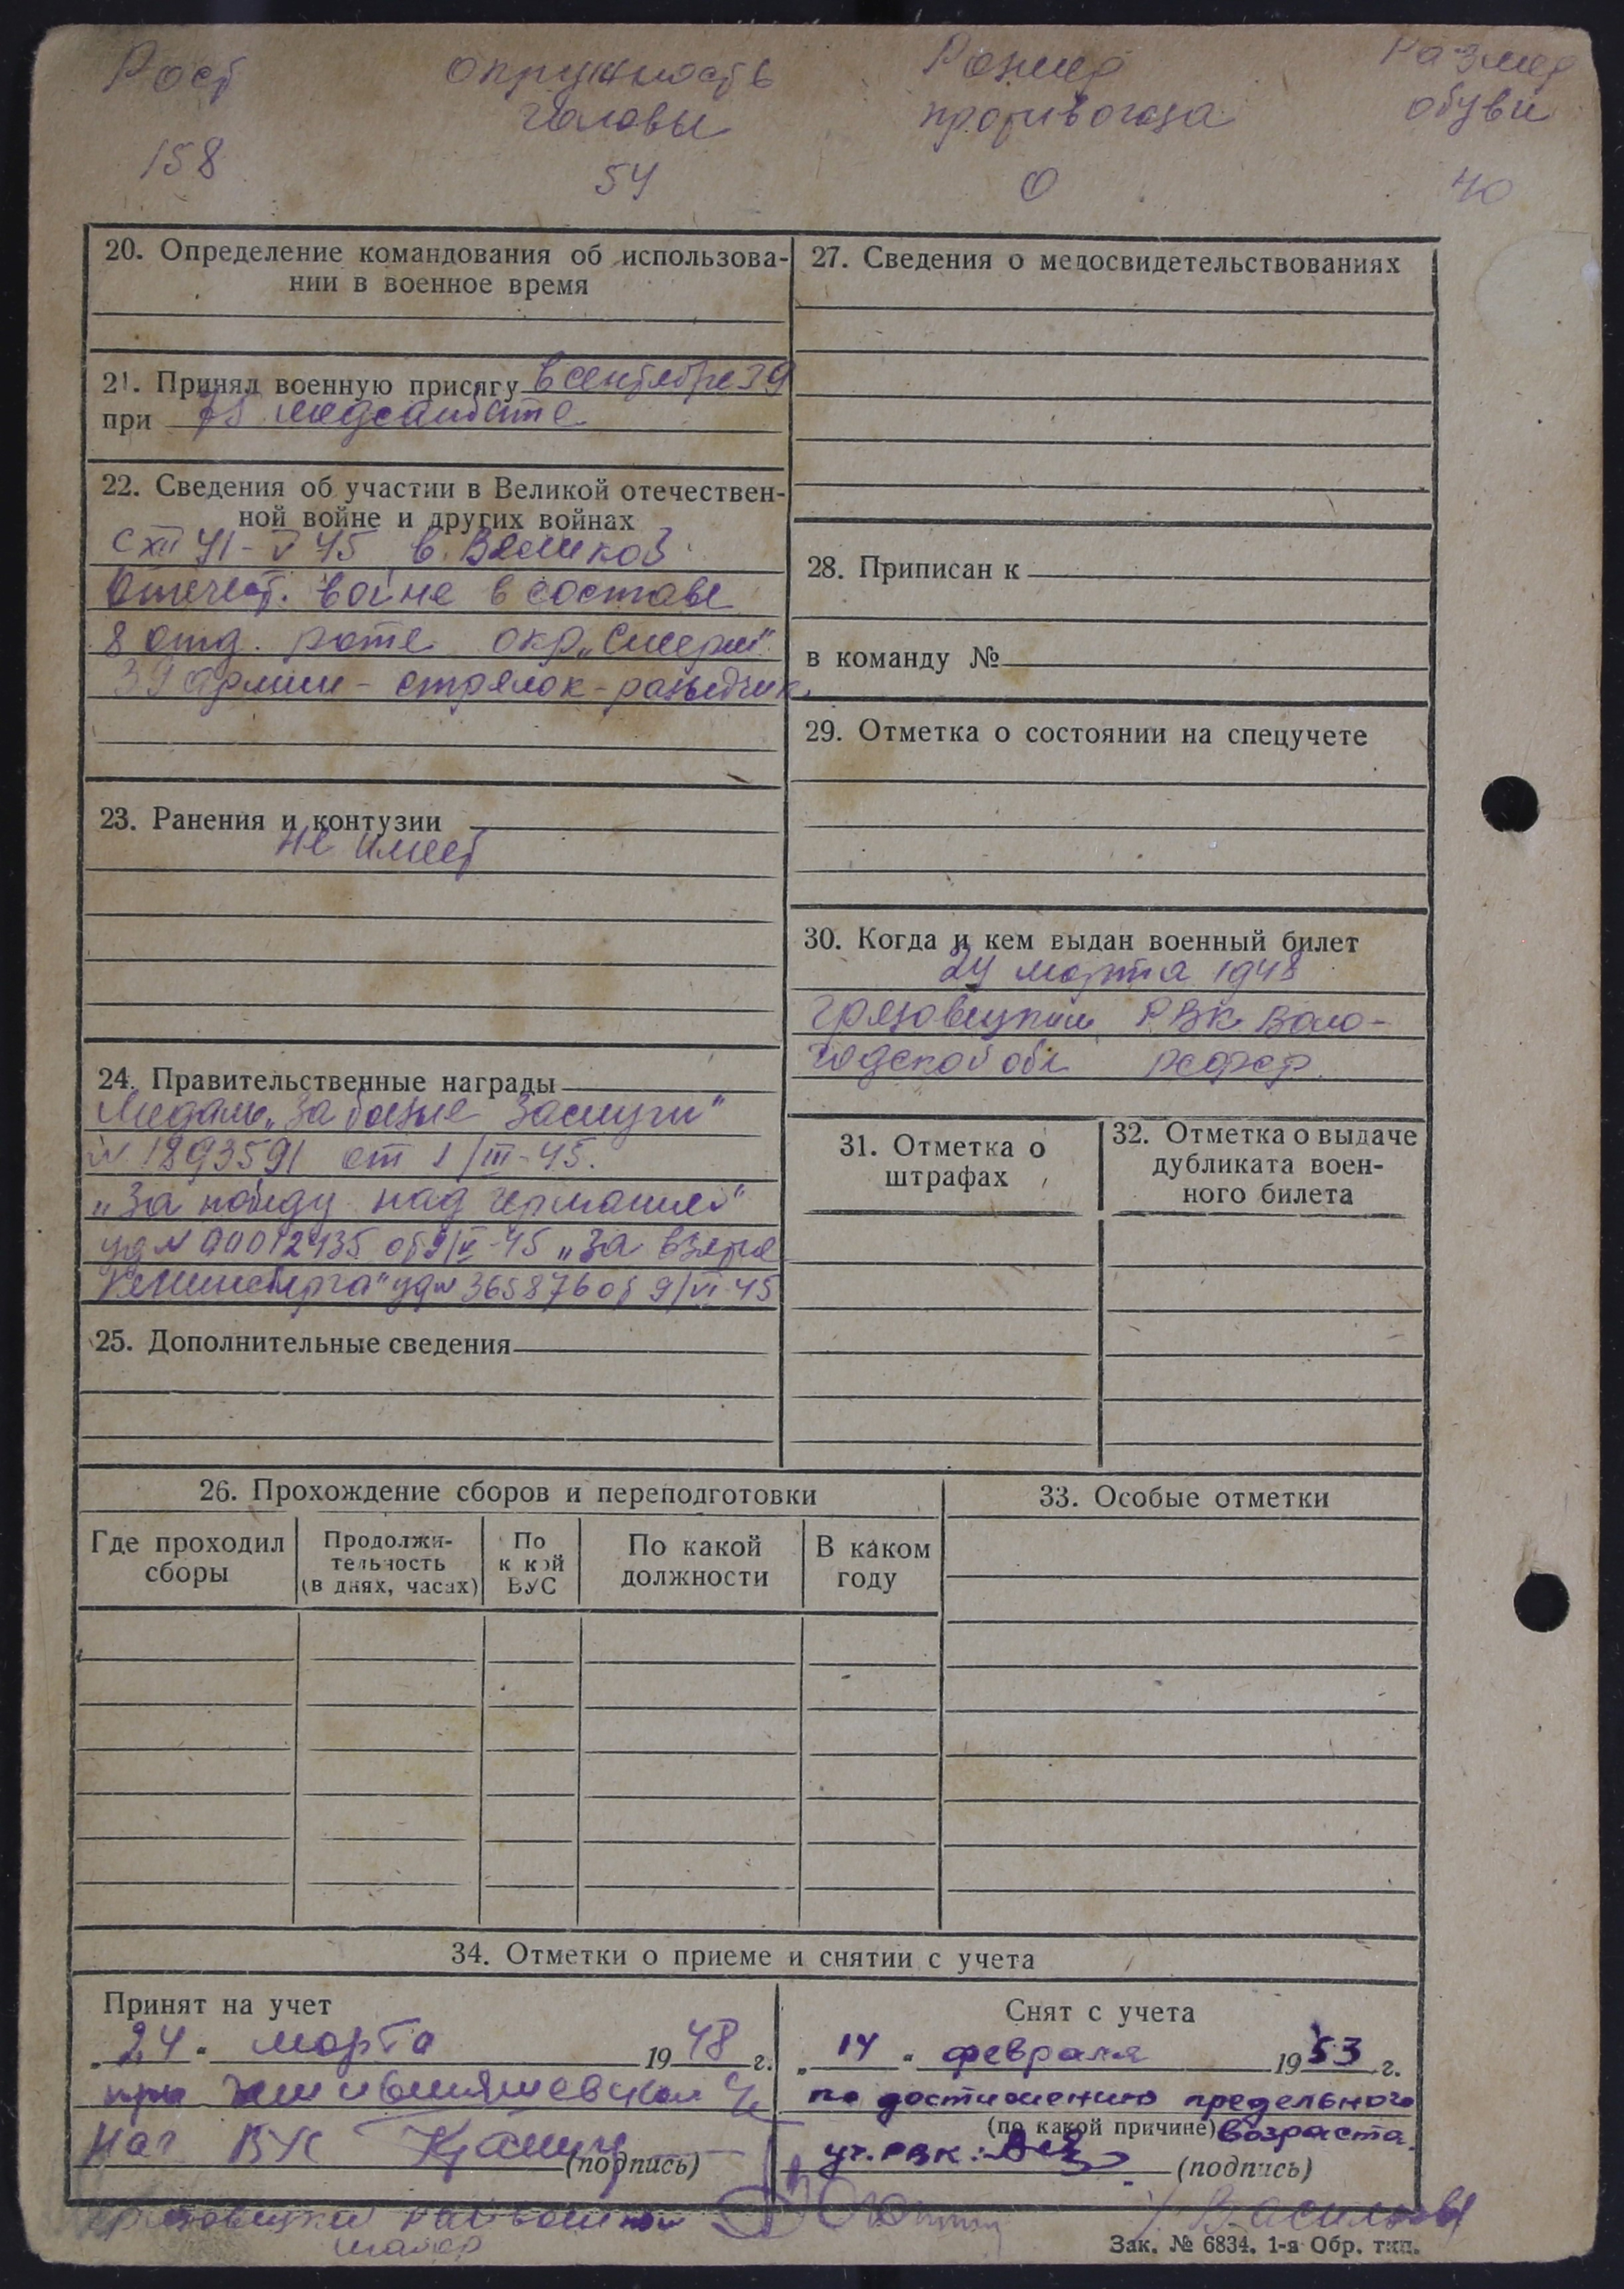 Рост окружность Размер Размер
головы противогаза обуви
158 54 0 40
20. Определение командования об использова-
нии в военное время
21. Принял военную присягу в сентябре 39
при медсанбате
22. Сведения об участии в Великой отечествен-
ной войне и других войнах
с XII 41 - V 45 в Великой
Отечест. войне в составе
8 отд. роте окр. „Смерш"
39 армии - стрелок-
23. Ранения и контузии
не имеет
24. Правительственные награды
Медаль „За боевые заслуги"
№ 1893591 от 1/III-45.
„За победу над германией"
уд № от 9/V-45 „За взятие
Кенинсберга" уд № 365876 от 9/VI-45
25. Дополнительные сведения
26. Прохождение сборов и переподготовки
Где проходил сборы
Продолжи-
тельность
(в днях, часах)
По
какой
ВУС
По какой
должности
В каком
году
27. Сведения о медосвидетельствованиях
28. Приписан к
в команду №
29. Отметка о состоянии на спецучете
30. Когда и кем выдан военный билет
24 марта 1948
Грязовецким РВК Воло-
годской обл РСФСР.
31. Отметка о
штрафах
32. Отметка о выдаче
дубликата воен-
ного билета
33. Особые отметки
34. Отметки о приеме и снятии с учета
Принят на учет
„24" марта 1948 г.
при
Нач ВУС
(подпись)
Снят с учета
„14" февраля 1953 г.
по достижению предельного
(по какой причине) возраста.
уч. РВК:
(подпись)
Грязовецкий райвоенком
майор
Зак. № 6834. 1-я Обр. тип.